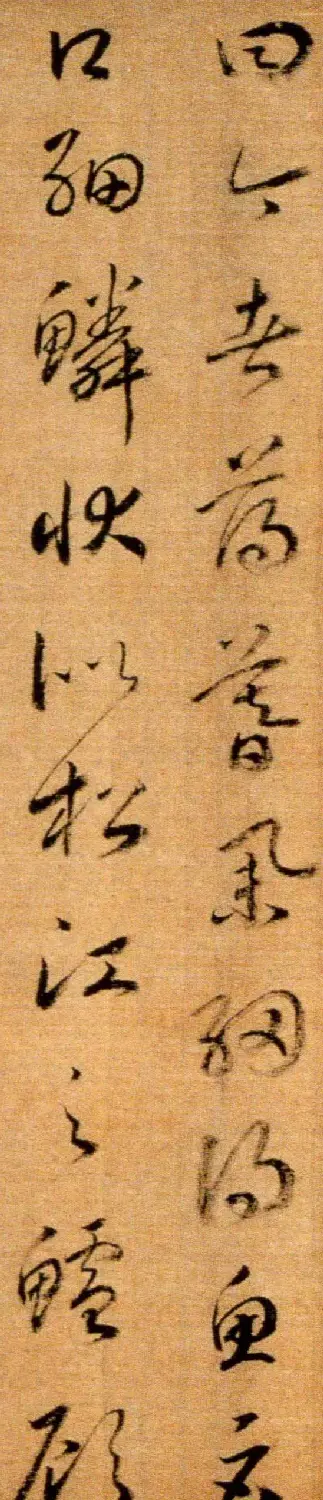 曰今者薄暮舉網得魚巨
口細鱗狀似松江之鱸顧